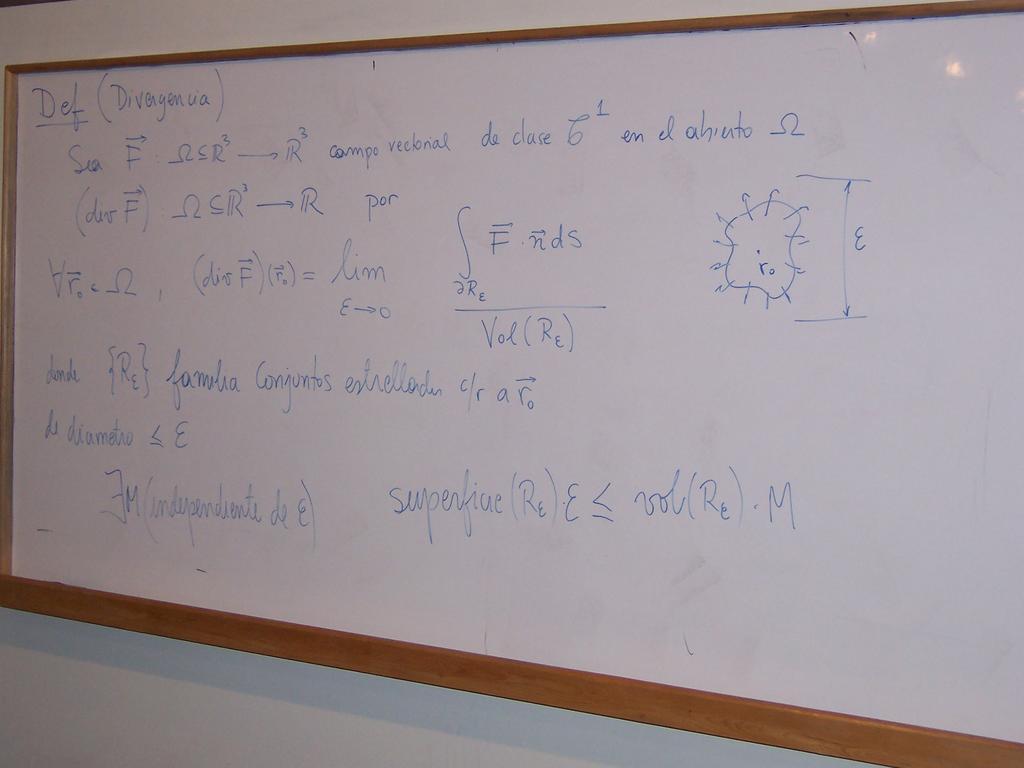 Def (Divergencia)
Sea F⃗ : Ω⊆ℝ³ ⟶ ℝ³ campo vectorial de clase 𝒞¹ en el abierto Ω
(div F⃗) Ω⊆ℝ³ ⟶ ℝ por
∀r⃗₀ ∈ Ω, (div F⃗)(r⃗₀) = lim ε→0 ∫ ∂R_ε F⃗ · n⃗ ds / Vol(R_ε)
r₀ ε
donde {R_ε} familia conjuntos estrellados c/r a r⃗₀
de diametro ≤ ε
∃M (independiente de ε) superficie(R_ε) ε ≤ vol(R_ε) · M